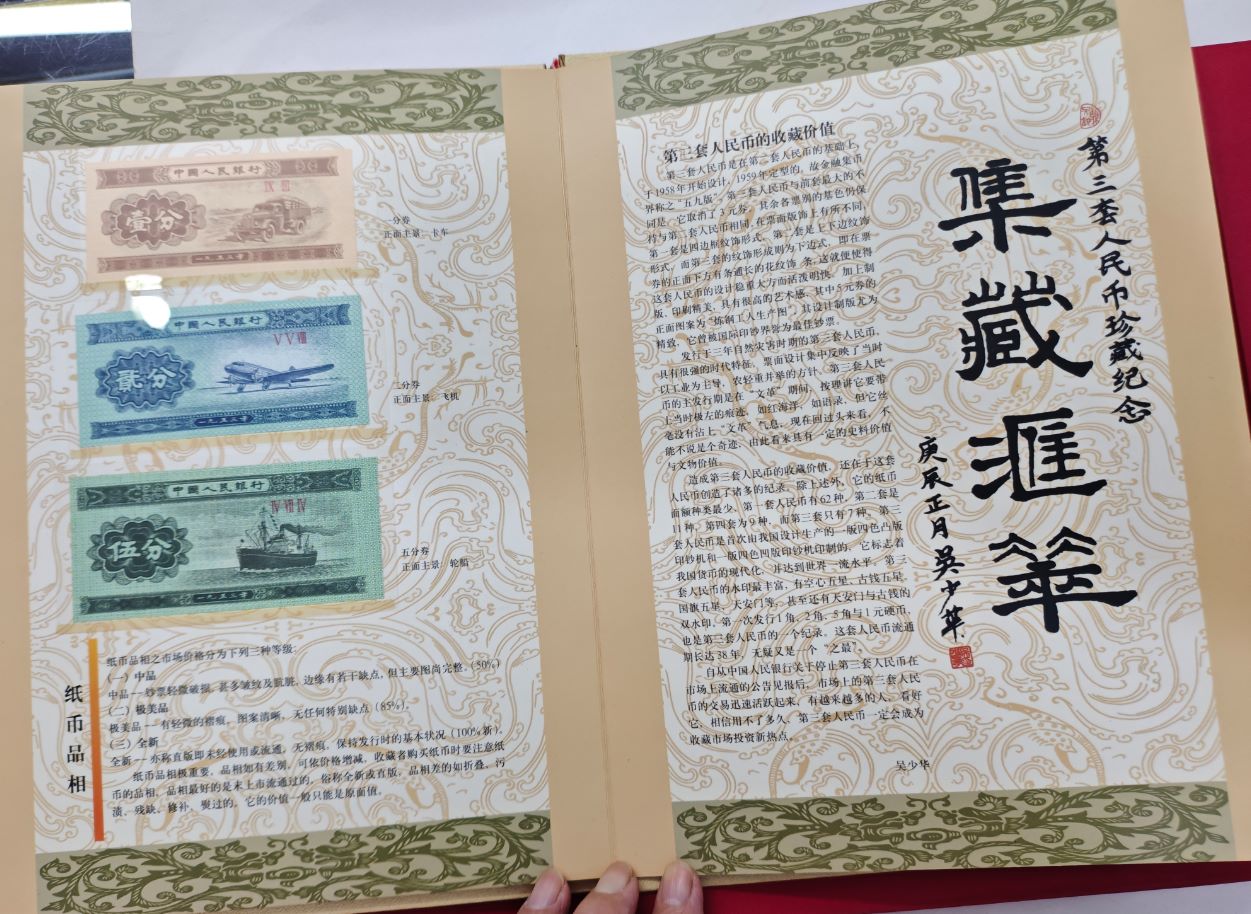 中國人民银行
IX III
壹分
一九五三年
一分券
正面主景：卡车
中國人民银行
V V VIII
貳分
一九五三年
二分券
正面主景：飞机
中國人民银行
IV VII IV
伍分
一九五三年
五分券
正面主景：轮船
纸币品相
纸币品相之市场价格分为下列三种等级：
(一) 中品
中品一钞票轻微破损，甚多皱纹及肮脏，边缘有若干缺点，但主要图尚完整。(50%)
(二) 极美品
极美品一有轻微的褶痕，图案清晰，无任何特别缺点 (85%)。
(三) 全新
全新一亦称直版即未经使用或流通，无褶痕，保持发行时的基本状况 (100%新)。
纸币品相极重要，品相如有差别，可依价格增减，收藏者购买纸币时要注意纸
币的品相，品相最好的是未上市流通过的，俗称全新或直版，品相差的如折叠、污
渍、残缺、修补、熨过的，它的价值一般只能是原面值。
第三套人民币的收藏价值
第三套人民币是在第二套人民币的基础上，
于1958年开始设计，1959年定型的，故金融集币
界称之“五九版”，第三套人民币与前套最大的不
同是，它取消了3元券，其余各票弱的基色仍保
持与第二套人民币相同，在票面版饰上有所不同，
第一套是四边框纹饰形式，第二套是上下边纹饰
形式，而第三套的纹饰形成则为下边式，即在票
券的正面下方有条通长的花纹饰 条，这就便使得
这套人民币的设计稳重大方而活泼明快，加上制
版、印刷精美，具有很高的艺术感，其中5元券的
正面图案为“炼钢工人生产图”，其设计制版尤为
精致，它曾被国际印钞界誉为最佳钞票。
发行于三年自然灾害时期的第三套人民币，
具有很强的时代特征，票面设计集中反映了当时
以工业为主导，农轻重并举的方针，第三套人民
币的主发行期是在“文革”期间，按理讲它要带
上当时极左的痕迹，如红海洋，如语录，但它丝
毫没有沾上“文革”气息，现在回过头来看，不
能不说是个奇迹，由此看来具有一定的史料价值
与文物价值。
造成第三套人民币的收藏价值，还在于这套
人民币创造了诸多的纪录，除上述外，它的纸币
面额种类最少，第一套人民币有62种，第二套是
11种，第四套为9种，而第三套只有7种，第三
套人民币是首次由我国设计生产的一版四色凸版
印钞机和一版四色凹版印钞机印制的，它标志着
我国货币的现代化，并达到世界一流水平，第三
套人民币的水印最丰富，有空心五星、古钱五星、
国旗五星、天安门等，甚至还有天安门与古钱的
双水印，第一次发行1角、2角、5角与1元硬币，
也是第三套人民币的一个纪录，这套人民币流通
期长达38年，无疑又是一个“之最”。
自从中国人民银行关于停止第三套人民币在
市场上流通的公告见报后，市场上的第三套人民
币的交易迅速活跃起来，有越来越多的人，看好
它，相信用不了多久，第三套人民币一定会成为
收藏市场投资新热点。
吴少华
第三套人民币珍藏纪念
集藏滙華
庚辰正月吴少華